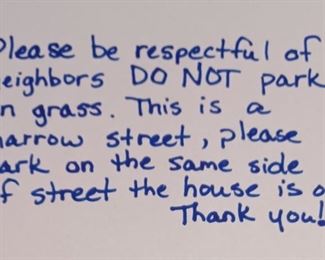 Please be respectful of
neighbors DO NOT park
on grass. This is a
narrow street, please
park on the same side
of street the house is on
Thank you!